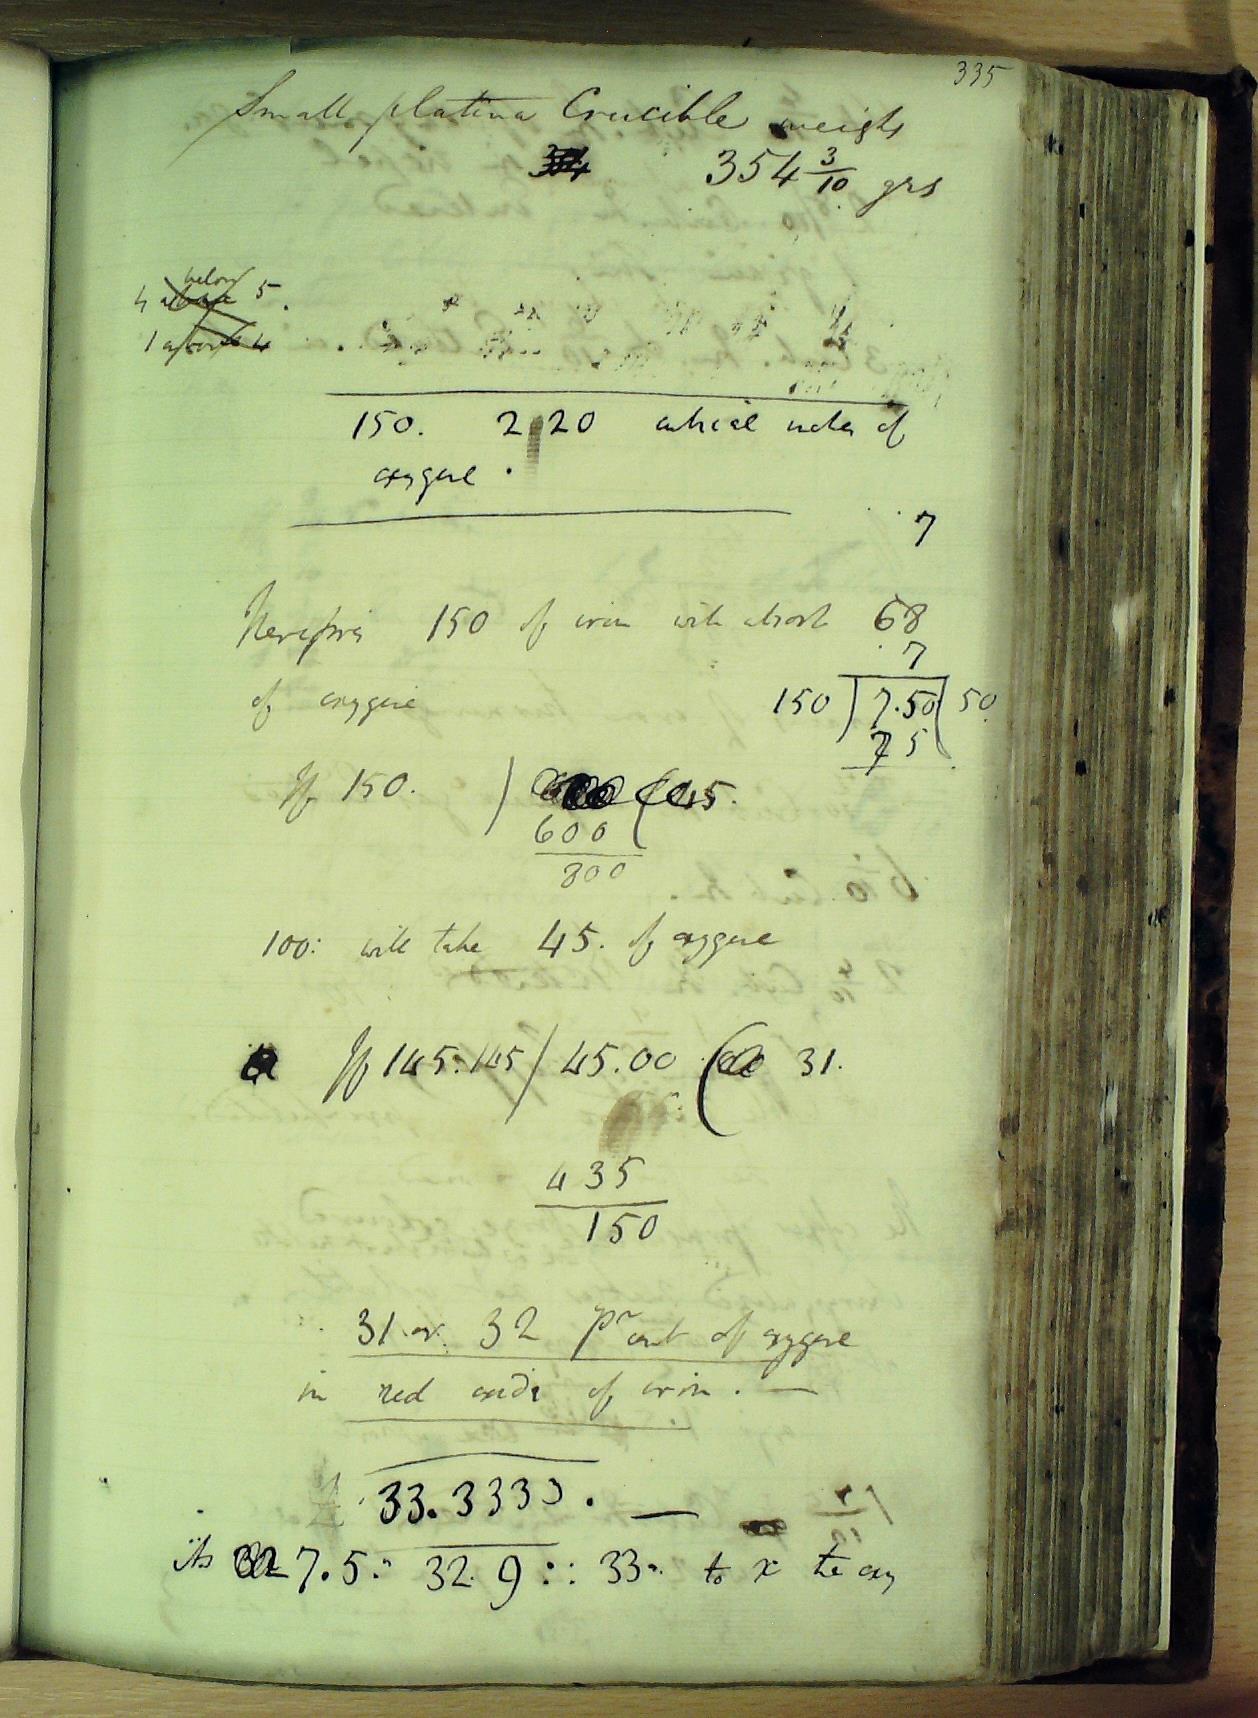 335
Small platina Crucible weighs
354 3/10 grs
below
4 above 5.
1 above 4
150. 2 20 cubical inches of
oxygene .
7
Therefore 150 of iron will absorb 68
7
of oxygene 150 ) 7.50 ( 50
75
If 150. ) ( 45.
600
300
100: will take 45. of oxygene
If 145: 145 / 45.00 ( 31.
435
150
31 or 32 pr cent of oxygene
in red oxide of iron . —
33.3333 . —
As 7.5 : 32.9 :: 33 . to x the oxy